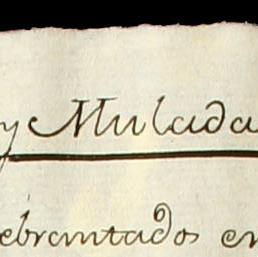 y Mulada
ebrantados en